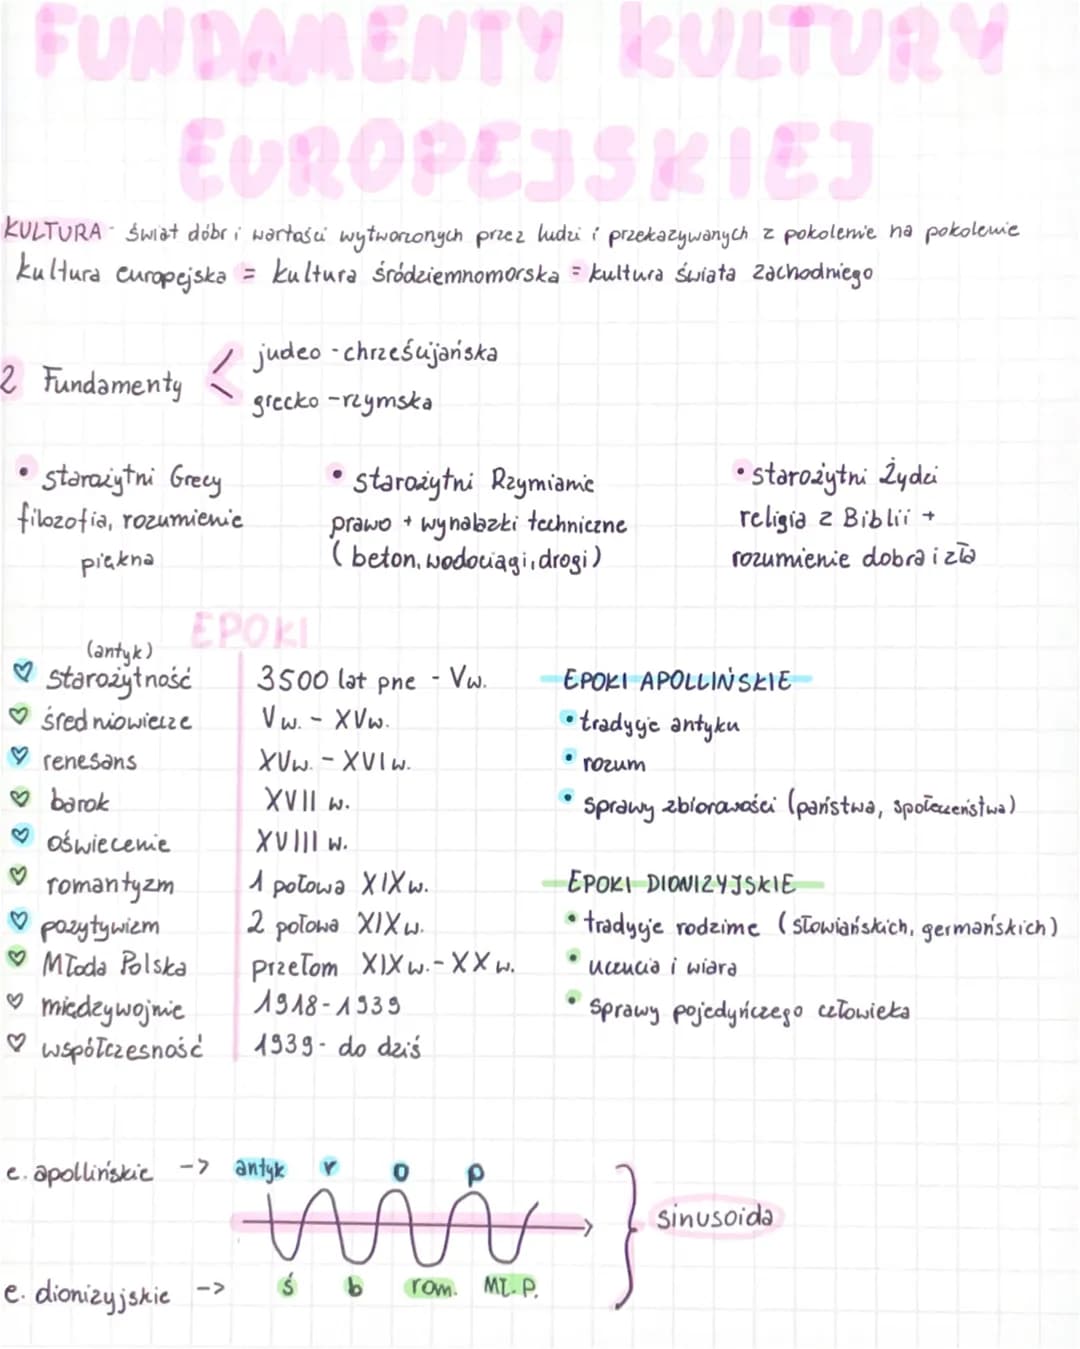 FUNDAMENTY KULTURY
EUROPEJSKIEJ
KULTURA - świat dóbr i wartości wytworzonych przez ludzi i przekazywanych z pokolenie na pokolenie
kultura europejska = kultura śródziemnomorska = kultura świata zachodniego
2 Fundamenty < judeo - chrześcijańska
grecko - rzymska
• starożytni Grecy
filozofia, rozumienie
piękna
• starożytni Rzymianie
prawo + wynalazki techniczne
(beton, wodociągi, drogi)
• starożytni Żydzi
religia z Biblii +
rozumienie dobra i zła
EPOKI
(antyk)
♡ starożytność 3500 lat pne - Vw.
♡ średniowiecze Vw. - XVw.
♡ renesans XVw. - XVIw.
♡ barok XVII w.
♡ oświecenie XVIII w.
♡ romantyzm 1 połowa XIXw.
♡ pozytywizm 2 połowa XIXw.
♡ Młoda Polska przełom XIXw. - XXw.
♡ międzywojnie 1918 - 1939
♡ współczesność 1939 - do dziś
EPOKI APOLLIŃSKIE
• tradycje antyku
• rozum
• sprawy zbiorowości (państwa, społeczeństwa)
EPOKI DIONIZYJSKIE
• tradycje rodzime (słowiańskich, germańskich)
• uczucia i wiara
• sprawy pojedyńczego człowieka
e. apollińskie -> antyk r o p
} sinusoida
e. dionizyjskie -> ś b rom. Mł. P.